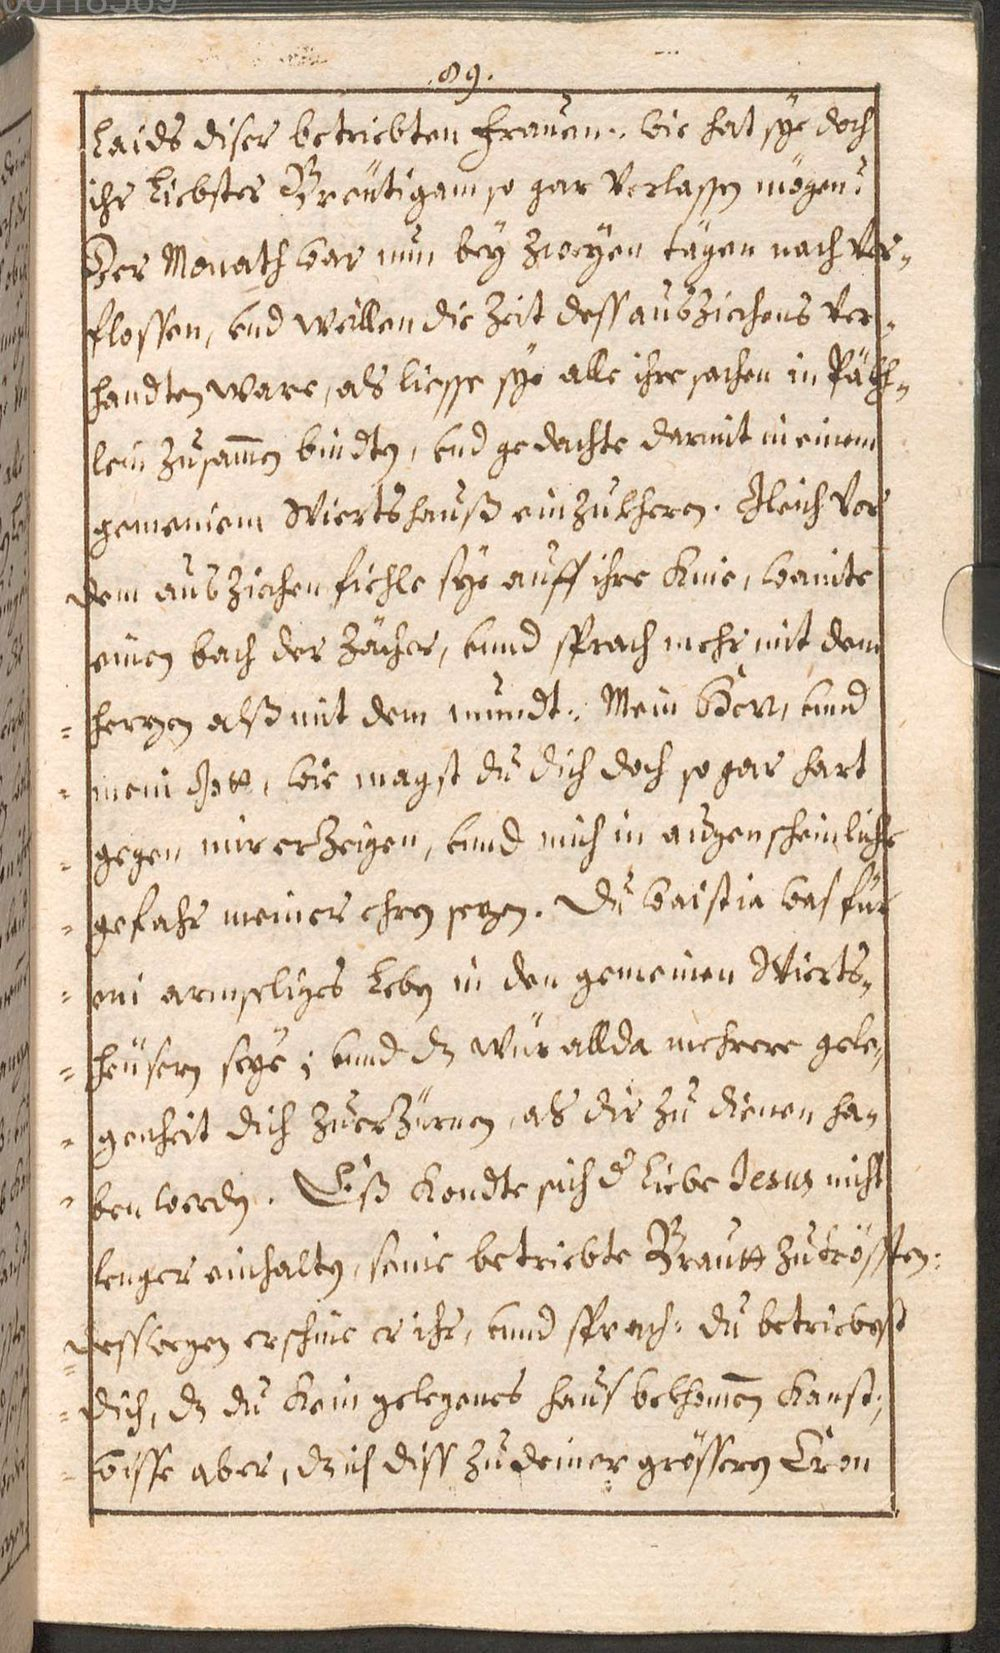 00118569
89.
Laids diser betriebten Frauen. wie hat sÿe doch
ihr liebster Breütigam so gar verlassen mögen?
Der Monath war nun beÿ zweÿen tägen nach ver-
flossen, und weillen die Zeit dess ausziechens ver-
handten ware, als liesse sÿe alle ihre sachen in Päckh-
lein zusam̄en bindten, und gedachte darmit in einem
gemeniem Wiertshauß einzukheren. Gleich vor
dem ausziechen fiehle sÿe auff ihre Knie, wainte
einen bach der Zächer, vnnd sprach mehr mit dem
= hertzen alß mit dem mundt. Mein Herr, vnnd
= mein Gott, wie magst du dich doch so gar hart
= gegen mir erzeigen, vnnd mich in augenscheinliche
= gefahr meiner ehren setzen. Du waist ia was für
= ein armseliges Leben in den gemeinen Wierts-
= heüsern seÿe; vnnd dz wür allda mehrere gele-
= genheit dich zuerzürnen, als dir zu dienen ha-
= ben werden. Eß kondte sich d' liebe Jesus nicht
lenger einhalten, seine betriebte Brautt zutrössten:
= desswegen erschine er ihr, vnnd sprach: du betriebest
= dich, dz du kein gelegenes haus bekhom̄en kanst;
= wisse aber, dz ich diss zu deiner grössern Cron